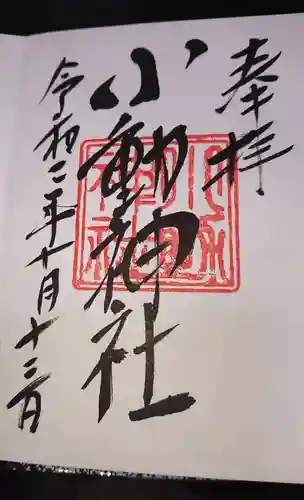 奉拝
小動神社
令和二年十月十三日